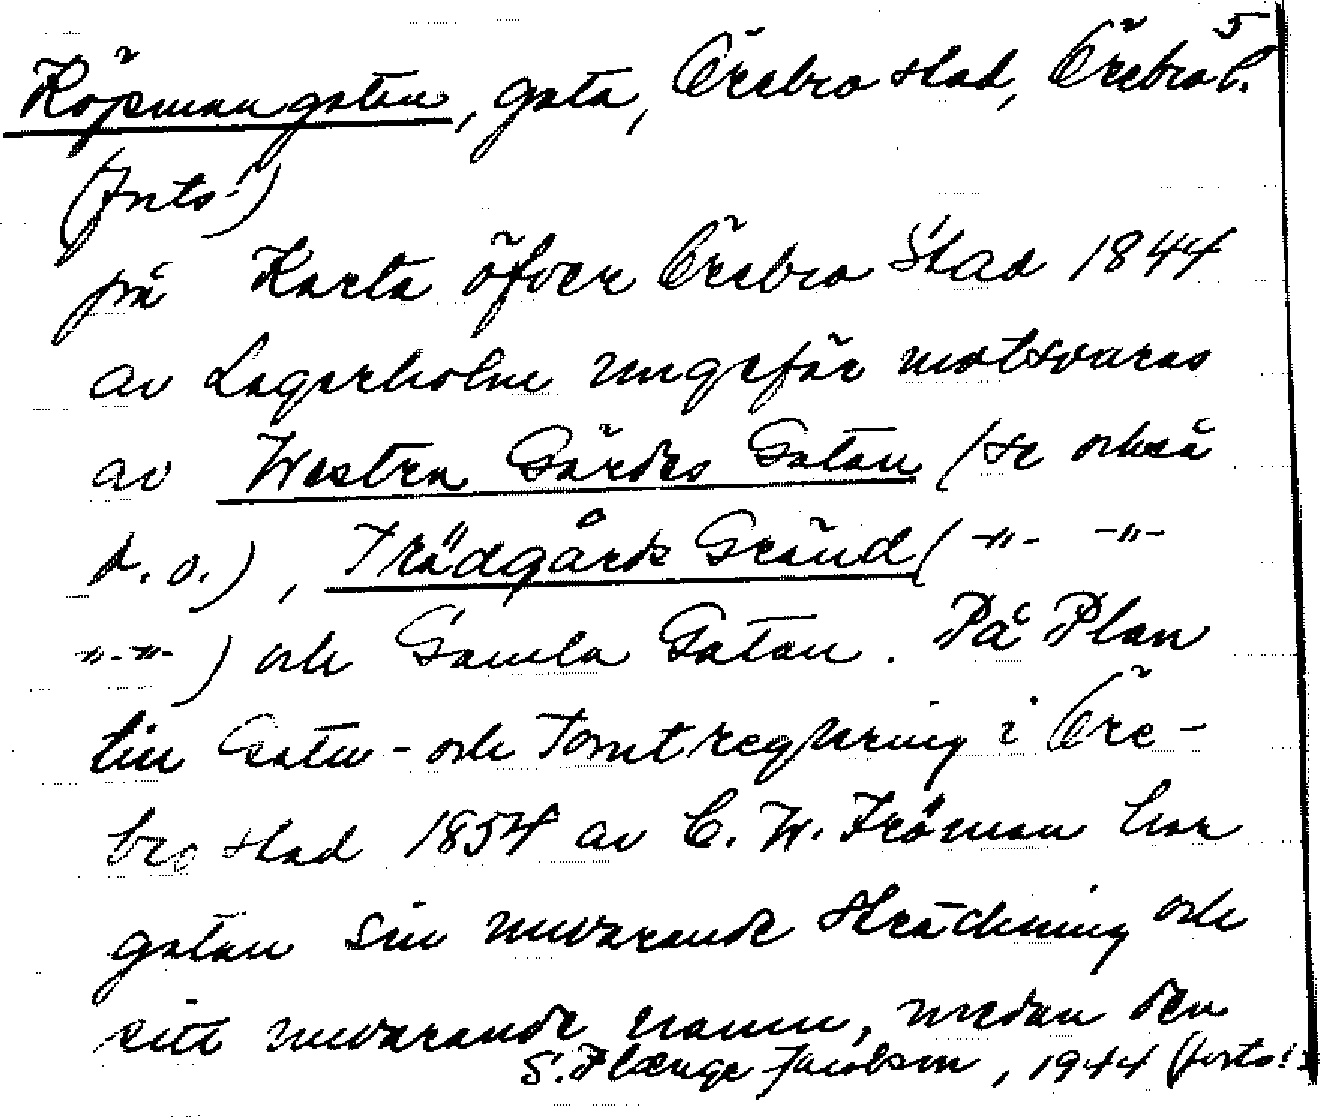 5
Köpmangatan, gata, Örebro stad, Örebro l.
(forts.!)
på Karta öfver Örebro Stad 1844
av Lagerholm ungefär motsvaras
av Westra Gärdes Gatan (se också
d. o.), Trädgårds Gränd ( -"- -"-
-"- -"- ) och Gamla Gatan. På Plan
till Gatu- och Tomtreglering i Öre-
bro stad 1854 av C. W. Fröman har
gatan sin nuvarande sträckning och
sitt nuvarande namn, medan den
S. Hænge Jacobson, 1944 (forts.!)